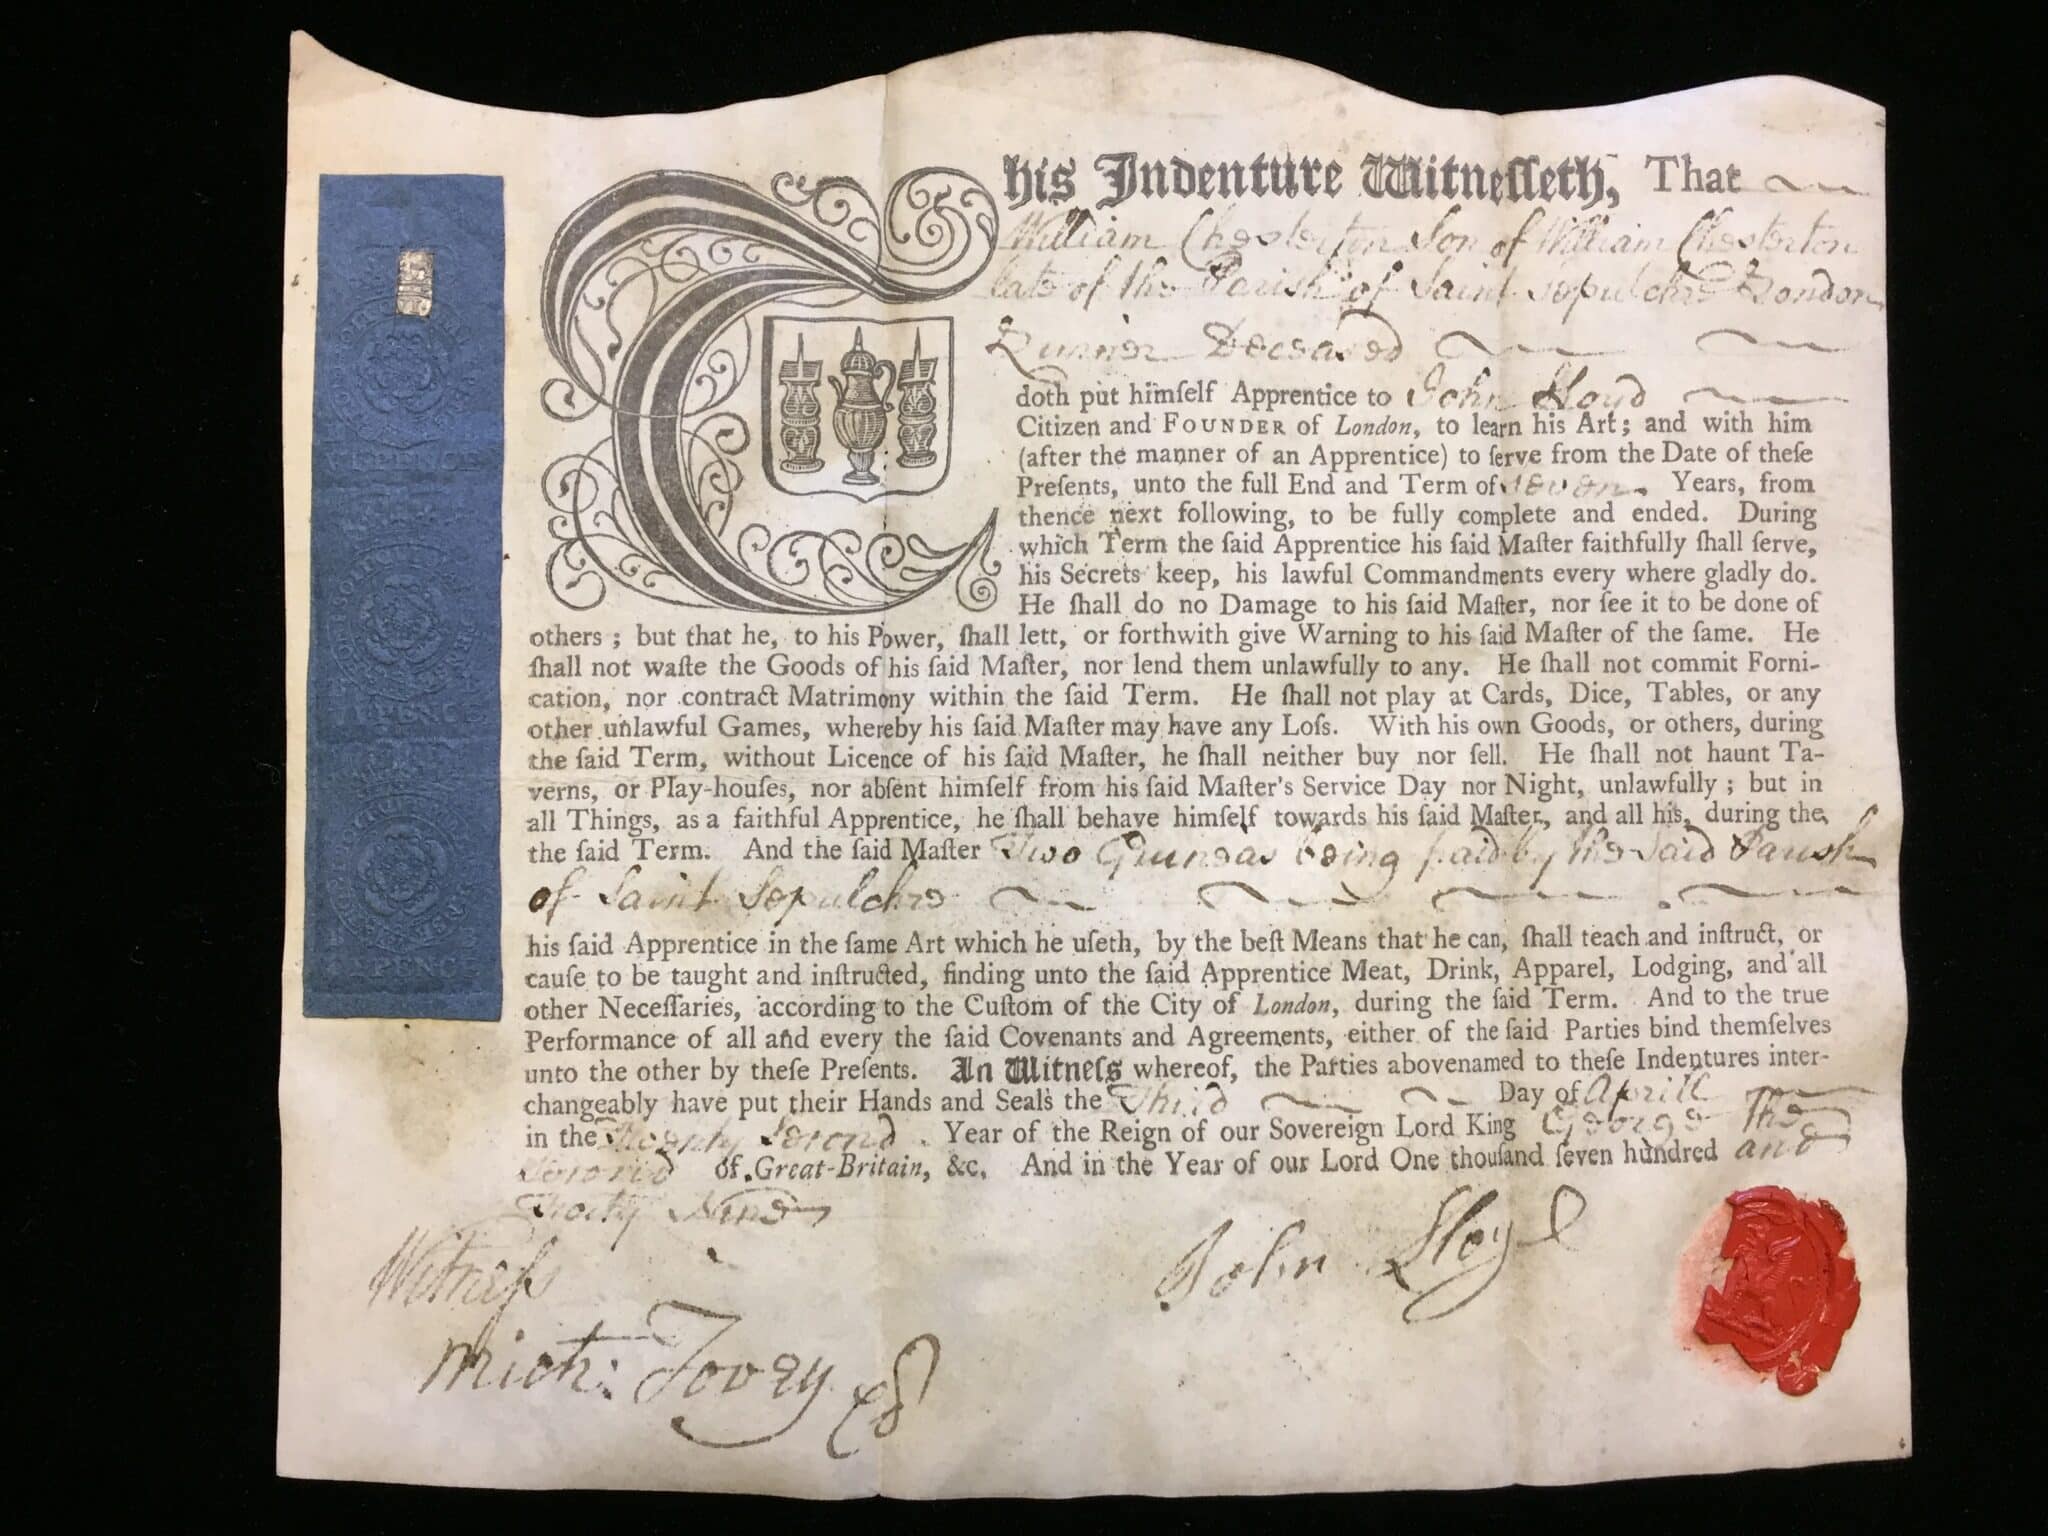 This Indenture Witneſſeth, That
William Chesterton Son of William Chesterton
late of the Parish of Saint Sepulchre London
Deceased
doth put himſelf Apprentice to John Lloyd
Citizen and FOUNDER of London, to learn his Art; and with him
(after the manner of an Apprentice) to ſerve from the Date of theſe
Preſents, unto the full End and Term of Seven Years, from
thence next following, to be fully complete and ended. During
which Term the ſaid Apprentice his ſaid Maſter faithfully ſhall ſerve,
his Secrets keep, his lawful Commandments every where gladly do.
He ſhall do no Damage to his ſaid Maſter, nor ſee it to be done of
others; but that he, to his Power, ſhall lett, or forthwith give Warning to his ſaid Maſter of the ſame. He
ſhall not waſte the Goods of his ſaid Maſter, nor lend them unlawfully to any. He ſhall not commit Forni-
cation, nor contract Matrimony within the ſaid Term. He ſhall not play at Cards, Dice, Tables, or any
other unlawful Games, whereby his ſaid Maſter may have any Loſs. With his own Goods, or others, during
the ſaid Term, without Licence of his ſaid Maſter, he ſhall neither buy nor ſell. He ſhall not haunt Ta-
verns, or Play-houſes, nor abſent himſelf from his ſaid Maſter's Service Day nor Night, unlawfully; but in
all Things, as a faithful Apprentice, he ſhall behave himſelf towards his ſaid Maſter, and all his, during the
the ſaid Term. And the ſaid Maſter Two Guineas being paid by the Said Parish
of Saint Sepulchre
his ſaid Apprentice in the ſame Art which he uſeth, by the beſt Means that he can, ſhall teach and inſtruct, or
cauſe to be taught and inſtructed, finding unto the ſaid Apprentice Meat, Drink, Apparel, Lodging, and all
other Neceſſaries, according to the Cuſtom of the City of London, during the ſaid Term. And to the true
Performance of all and every the ſaid Covenants and Agreements, either of the ſaid Parties bind themſelves
unto the other by theſe Preſents. In Witneſs whereof, the Parties abovenamed to theſe Indentures inter-
changeably have put their Hands and Seals the Third Day of Aprill
in the Twenty Second Year of the Reign of our Sovereign Lord King George The
Second of Great-Britain, &c. And in the Year of our Lord One thouſand ſeven hundred and
Forty Nine
Witneſs
John Lloyd
Mich: Tovey
VI PENCE
VI PENCE
VI PENCE